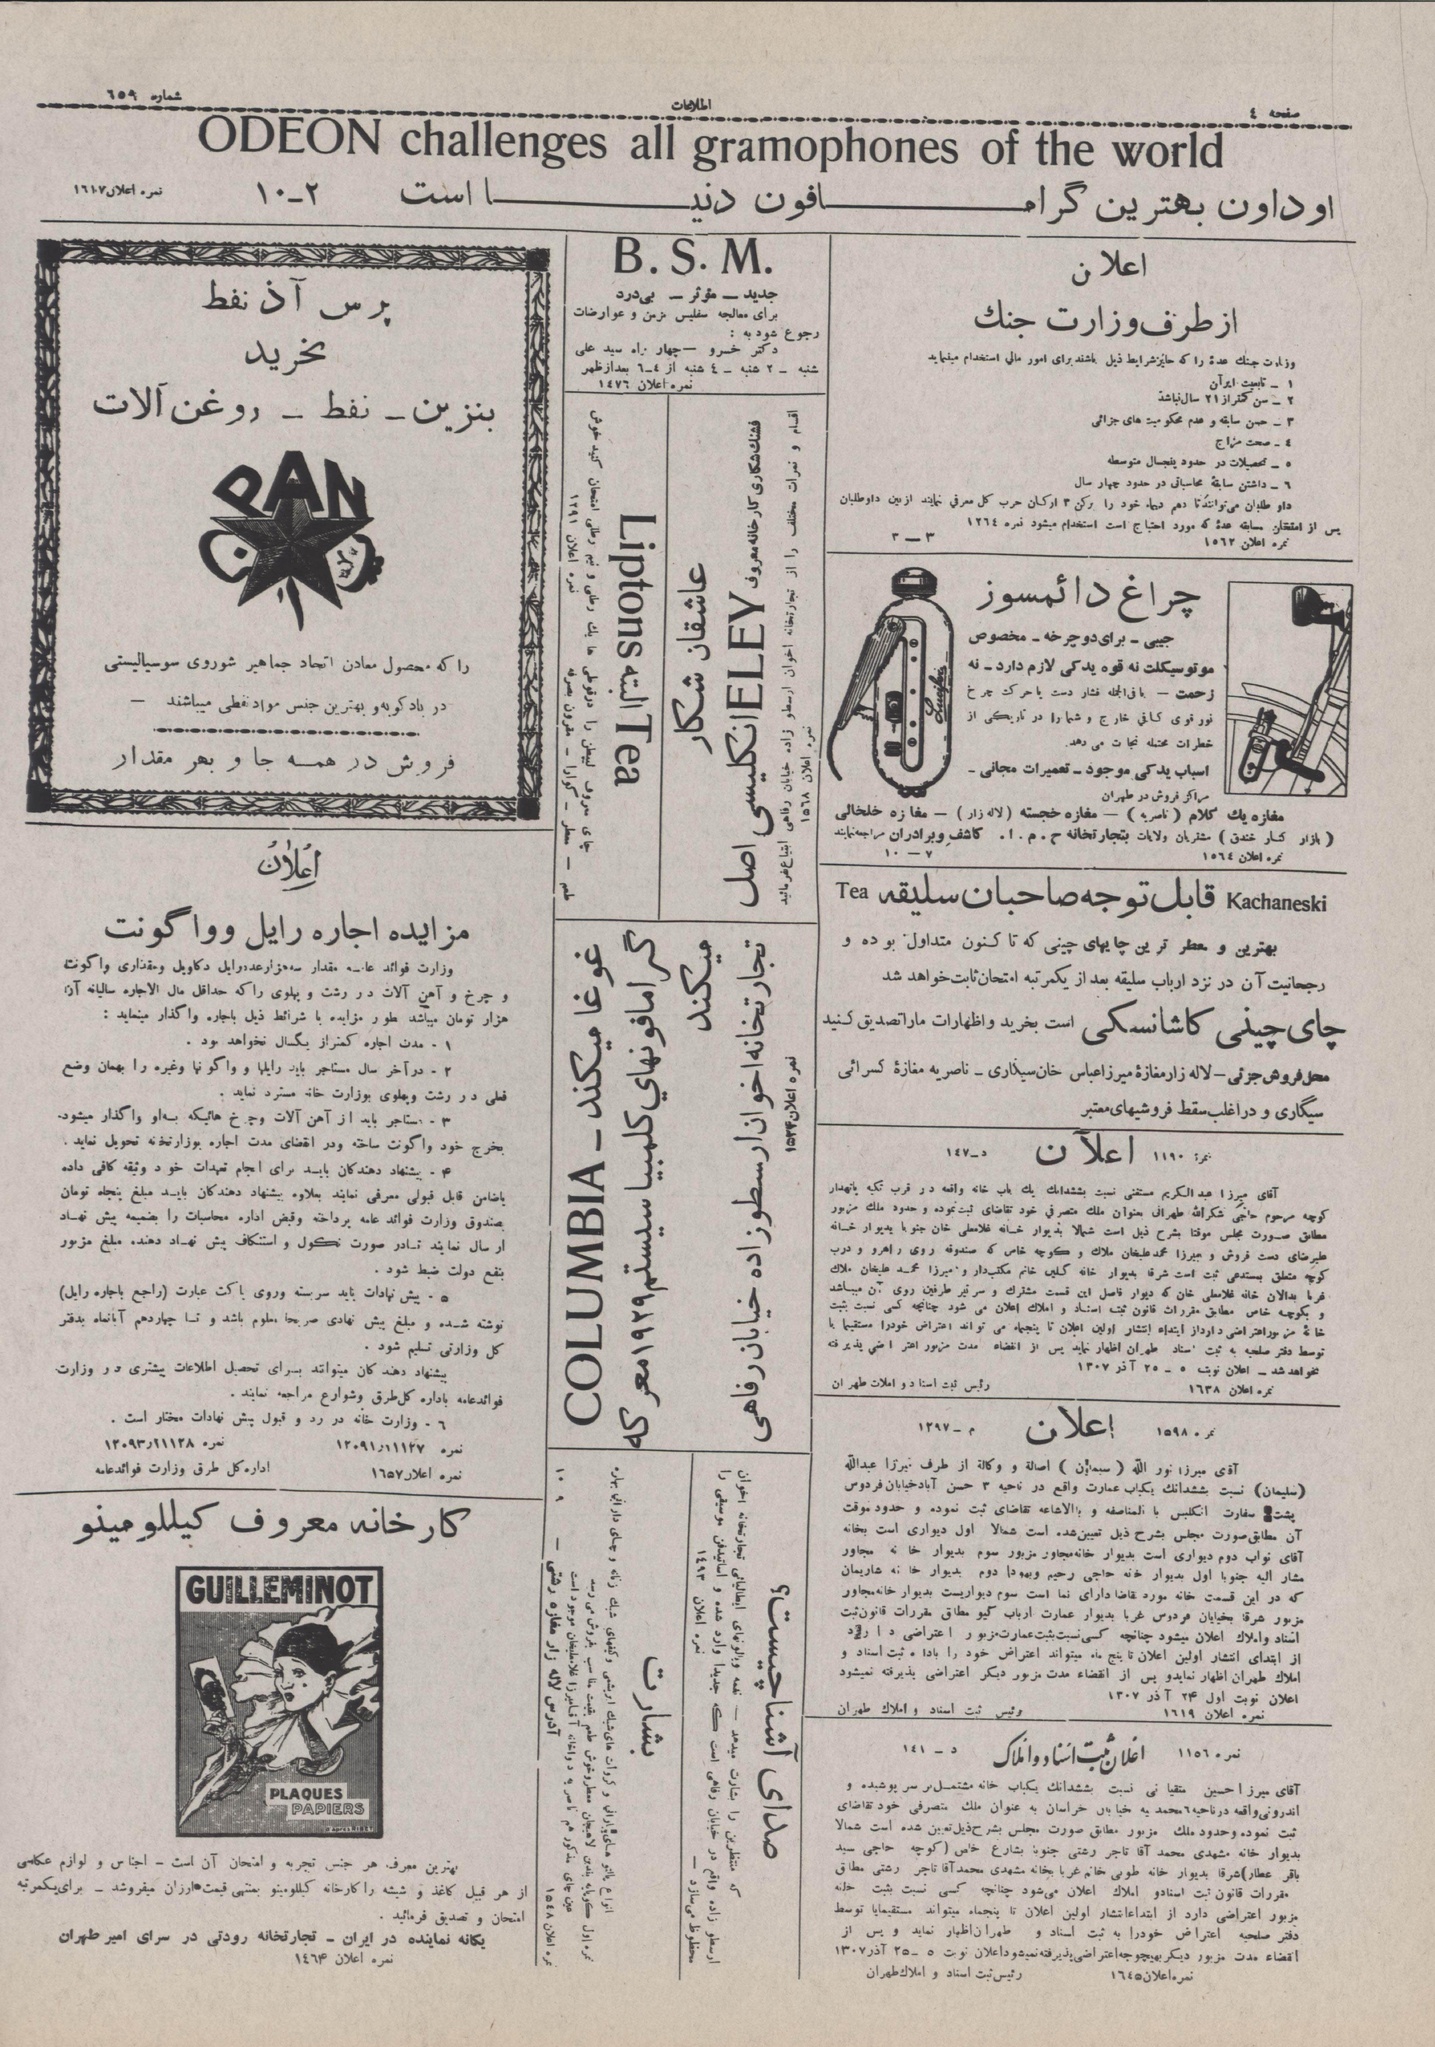 صفحه ٤
اطلاعات
شماره ٦٥٩
ODEON challenges all gramophones of the world
اوداون بهترین گرامافون دنیا است
٢-١٠
نمره اعلان ١٦١٧
اعلان
از طرف وزارت جنك
وزارت جنك عدۀ را که حائز شرایط ذیل باشند برای امور مالی استخدام مینماید
١ - تابعیت ایران
٢ - سن کمتر از ٢١ سال نباشد
٣ - حسن سابقه و عدم محکومیت های جزائی
٤ - صحت مزاج
٥ - تحصیلات در حدود پنجسال متوسطه
٦ - داشتن سابقۀ محاسباتی در حدود چهار سال
داوطلبان می‌توانند تا دهم دیماه خود را برکن ٣ ارکان حرب کل معرفی نمایند از بین داوطلبان
پس از امتحان مسابقه عدۀ که مورد احتیاج است استخدام میشود نمره ١٢٦٤
نمره اعلان ١٥٦٢
٣ - ٣
چراغ دائمسوز
جیبی - برای دوچرخه - مخصوص
موتوسیکلت نه قوه یدکی لازم دارد - نه
زحمت - با فشار دست یا حرکت چرخ
نور قوی کافی خارج و شما را در تاریکی از
خطرات محتمله نجات می دهد
اسباب یدکی موجود - تعمیرات مجانی -
مراکز فروش در طهران
مغازه یك کلام (ناصریه) - مغازه خجسته (لاله زار) - مغازه خلخالی
(بازار کنار خندق) مشتریان ولایات بتجارتخانه ح. م. ا. کاشف و برادران مراجعه نمایند
نمره اعلان ١٥٦٤
٧ - ١٠
Lucifer
Kachaneski قابل توجه صاحبان سلیقه Tea
بهترین و معطر ترین چایهای چینی که تا کنون متداول بوده و
رجحانیت آن در نزد ارباب سلیقه بعد از یکمرتبه امتحان ثابت خواهد شد
چای چینی کاشانسکی است بخرید و اظهارات ما را تصدیق کنید
محل فروش جزئی - لاله زار مغازۀ میرزا عباس خان سیگاری - ناصریه مغازۀ کسرائی
سیگاری و در اغلب سقط فروشیهای معتبر
نمره ١١٩٠
اعلان
د-١٤٧
آقای میرزا عبدالکریم مستغنی نسبت بششدانك یك باب خانه واقعه در قرب تکیه پانهدار
کوچه مرحوم حاجی شکرالله طهرانی بعنوان ملك متصرفی خود تقاضای ثبت نموده و حدود ملك مزبور
مطابق صورت مجلس موقتا بشرح ذیل است شمالا بدیوار خانه غلامعلی خان جنوبا بدیوار خانه
علیرضای دست فروش و میرزا محمد علیخان ملاك و کوچه خاص که صندوقه روی راهرو و درب
کوچه متعلق بمستدعی ثبت است شرقا بدیوار خانه گلین خانم مکتب‌دار و میرزا محمد علیخان ملاك
غربا بدالان خانه غلامعلی خان که دیوار فاصل این قسمت مشترك و سر تیر طرفین روی آن میباشد
و بکوچه خاص مطابق مقررات قانون ثبت اسناد و املاك اعلان می شود چنانچه کسی نسبت بثبت
خانۀ مزبور اعتراضی دارد از ابتداء انتشار اولین اعلان تا پنجماه می تواند اعتراض خود را مستقیما یا
توسط دفتر صلحیه به ثبت اسناد طهران اظهار نماید پس از انقضاء مدت مزبور اعتراضی پذیرفته
نخواهد شد - اعلان نوبت ٥ - ٢٥ آذر ١٣٠٧
نمره اعلان ١٦٣٨
رئیس ثبت اسناد و املاك طهران
نمره ١٥٩٨
اعلان
م-١٢٩٧
آقای میرزا نور الله (سیمان) اصالة و وکالة از طرف میرزا عبدالله
(سلیمان) نسبت بششدانك یکباب عمارت واقع در ناحیه ٣ حسن آباد خیابان فردوس
پشت سفارت انگلیس بالمناصفه و بالاشاعه تقاضای ثبت نموده و حدود موقت
آن مطابق صورت مجلس بشرح ذیل تعیین شده است شمالا اول دیواری است بخانه
آقای نواب دوم دیواری است بدیوار خانه مجاور مزبور سوم بدیوار خانه مجاور
مشار الیه جنوبا اول بدیوار خانه حاجی رحیم و یهودا دوم بدیوار خانه شاریمان
که در این قسمت خانه مورد تقاضا دارای نما است سوم دیواریست بدیوار خانه مجاور
مزبور شرقا بخیابان فردوس غربا بدیوار عمارت ارباب گیو مطابق مقررات قانون ثبت
اسناد و املاك اعلان میشود چنانچه کسی نسبت بثبت عمارت مزبور اعتراضی دارد
از ابتدای انتشار اولین اعلان تا پنج ماه میتواند اعتراض خود را باداره ثبت اسناد و
املاك طهران اظهار نماید و پس از انقضاء مدت مزبور دیگر اعتراضی پذیرفته نمیشود
اعلان نوبت اول ٢٤ آذر ١٣٠٧
نمره اعلان ١٦١٩
رئیس ثبت اسناد و املاك طهران
نمره ١١٥٦
اعلان ثبت اسناد و املاک
د - ١٤١
آقای میرزا حسین متقیانی نسبت بششدانك یکباب خانه مشتمل بر سر پوشیده و
اندرونی واقعه در ناحیه ٦ محمدیه خیابان خراسان به عنوان ملك متصرفی خود تقاضای
ثبت نموده وحدود ملك مزبور مطابق صورت مجلس بشرح ذیل تعیین شده است شمالا
بدیوار خانه مشهدی محمد آقا تاجر رشتی جنوبا بشارع خاص (کوچه حاجی سید
باقر عطار) شرقا بدیوار خانه طوبی خانم غربا بخانه مشهدی محمد آقا تاجر رشتی مطابق
مقررات قانون ثبت اسناد و املاك اعلان می‌شود چنانچه کسی نسبت بثبت خانه
مزبور اعتراضی دارد از ابتداء انتشار اولین اعلان تا پنجماه میتواند مستقیما یا توسط
دفتر صلحیه اعتراض خود را به ثبت اسناد و طهران اظهار نماید و پس از
انقضاء مدت مزبور دیگر بهیچوجه اعتراضی پذیرفته نمیشود اعلان نوبت ٥ - ٢٥ آذر ١٣٠٧
نمره اعلان ١٦٤٥
رئیس ثبت اسناد و املاك طهران
B. S. M.
جدید - مؤثر - بی‌درد
برای معالجه سفلیس مزمن و عوارضات
رجوع شود به:
دکتر خسرو - چهار راه سید علی
شنبه - ٢ شنبه - ٤ شنبه از ٤-٦ بعد از ظهر
نمره اعلان ١٤٧٦
عاشقان شکار
فشنك شکاری کارخانه معروف ELEY انگلیسی اصل
اقسام و نمرات مختلف را از تجارتخانه اخوان ارسطو زاده خیابان رفاهی ابتیاع فرمائید
نمره اعلان ١٥٦٨
Liptons البته Tea
چای معروف لیپطن را در قوطی ها یك رطلی و نیم رطلی امتحان کنید خوش
طعم - معطر - گوارا - مقرون بصرفه
نمره اعلان ١٢٩١
غوغا میکند - COLUMBIA
گرامافونهای کلمبیا سیستم ١٩٢٩ معرکه
میکند
تجارتخانه اخوان ارسطو زاده خیابان رفاهی
نمره اعلان ١٥٣٤
صدای آشنا چیست؟
که منتظرین را بشارت میدهد - نغمه ویالونهای ایطالیائی تجارتخانه اخوان
ارسطو زاده واقع در خیابان رفاهی است که جدیدا وارد شده و اساتیدفن موسیقی را
محظوظ می‌سازد - نمره اعلان ١٤٩٣
بشارت
انواع پالتو های بارانی و کروات های شیك اریشی و کفشهای شیك زنانه و چای دارائی بهاره
نمره اول لاهیجان معطر و خوش طعم بقیمت مناسب بفروش می رسد
آدرس لاله زار مغازه رشتی
٩ - ١٠
نمره اعلان ١٥٤٨
پرس آذ نفط
بخرید
بنزین - نفط - روغن آلات
PAN
را که محصول معادن اتحاد جماهیر شوروی سوسیالیستی
در بادکوبه و بهترین جنس مواد نفطی میباشند -
فروش در همه جا و بهر مقدار
اعلان
مزایده اجاره رایل و واگونت
وزارت فوائد عامه مقدار سه هزار عدد رایل دکاویل و مقداری واگونت
و چرخ و آهن آلات در رشت و پهلوی را که حداقل مال الاجاره سالیانه آن
هزار تومان میباشد بطور مزایده با شرائط ذیل باجاره واگذار مینماید:
١ - مدت اجاره کمتر از یکسال نخواهد بود.
٢ - در آخر سال مستاجر باید رایلها و واگونها وغیره را بهمان وضع
فعلی در رشت وپهلوی بوزارت خانه مسترد نماید.
٣ - مستاجر باید از آهن آلات وچرخ هائیکه به او واگذار میشود.
بخرج خود واگونت ساخته ودر انقضای مدت اجاره بوزارتخانه تحویل نماید.
۴ - پیشنهاد دهندگان باید برای انجام تعهدات خود وثیقه کافی داده
یاضامن قابل قبولی معرفی نمایند بعلاوه پیشنهاد دهندگان باید مبلغ پنجاه تومان
بصندوق وزارت فوائد عامه پرداخته وقبض اداره محاسبات را بضمیمه پیش نهاد
ارسال نمایند تا در صورت نکول و استنکاف پیش نهاد دهنده مبلغ مزبور
بنفع دولت ضبط شود.
٥ - پیش نهادات باید سربسته وروی پاکت عبارت (راجع باجاره رایل)
نوشته شده و مبلغ پیش نهادی صریحا معلوم باشد و تا چهاردهم آبانماه بدفتر
کل وزارتی تسلیم شود.
پیشنهاد دهندگان میتوانند برای تحصیل اطلاعات بیشتری در وزارت
فوائدعامه باداره کل‌طرق وشوارع مراجعه نمایند.
٦ - وزارت خانه در رد و قبول پیش نهادات مختار است.
نمره ١٢٠٩١/١١١٢٧
نمره ١٢٠٩٣/١١١٢٨
نمره اعلان ١٦٥٧
اداره کل طرق وزارت فوائدعامه
کارخانه معروف کیللومینو
GUILLEMINOT
PLAQUES
PAPIERS
بهترین معرف هر جنس تجربه و امتحان آن است - اجناس و لوازم عکاسی
از هر قبیل کاغذ و شیشه را کارخانه کیللومینو بمنتهی قیمت ارزان میفروشد - برای یکمرتبه
امتحان و تصدیق فرمائید.
یگانه نماینده در ایران - تجارتخانه رودتی در سرای امیر طهران
نمره اعلان ١٤٦۴